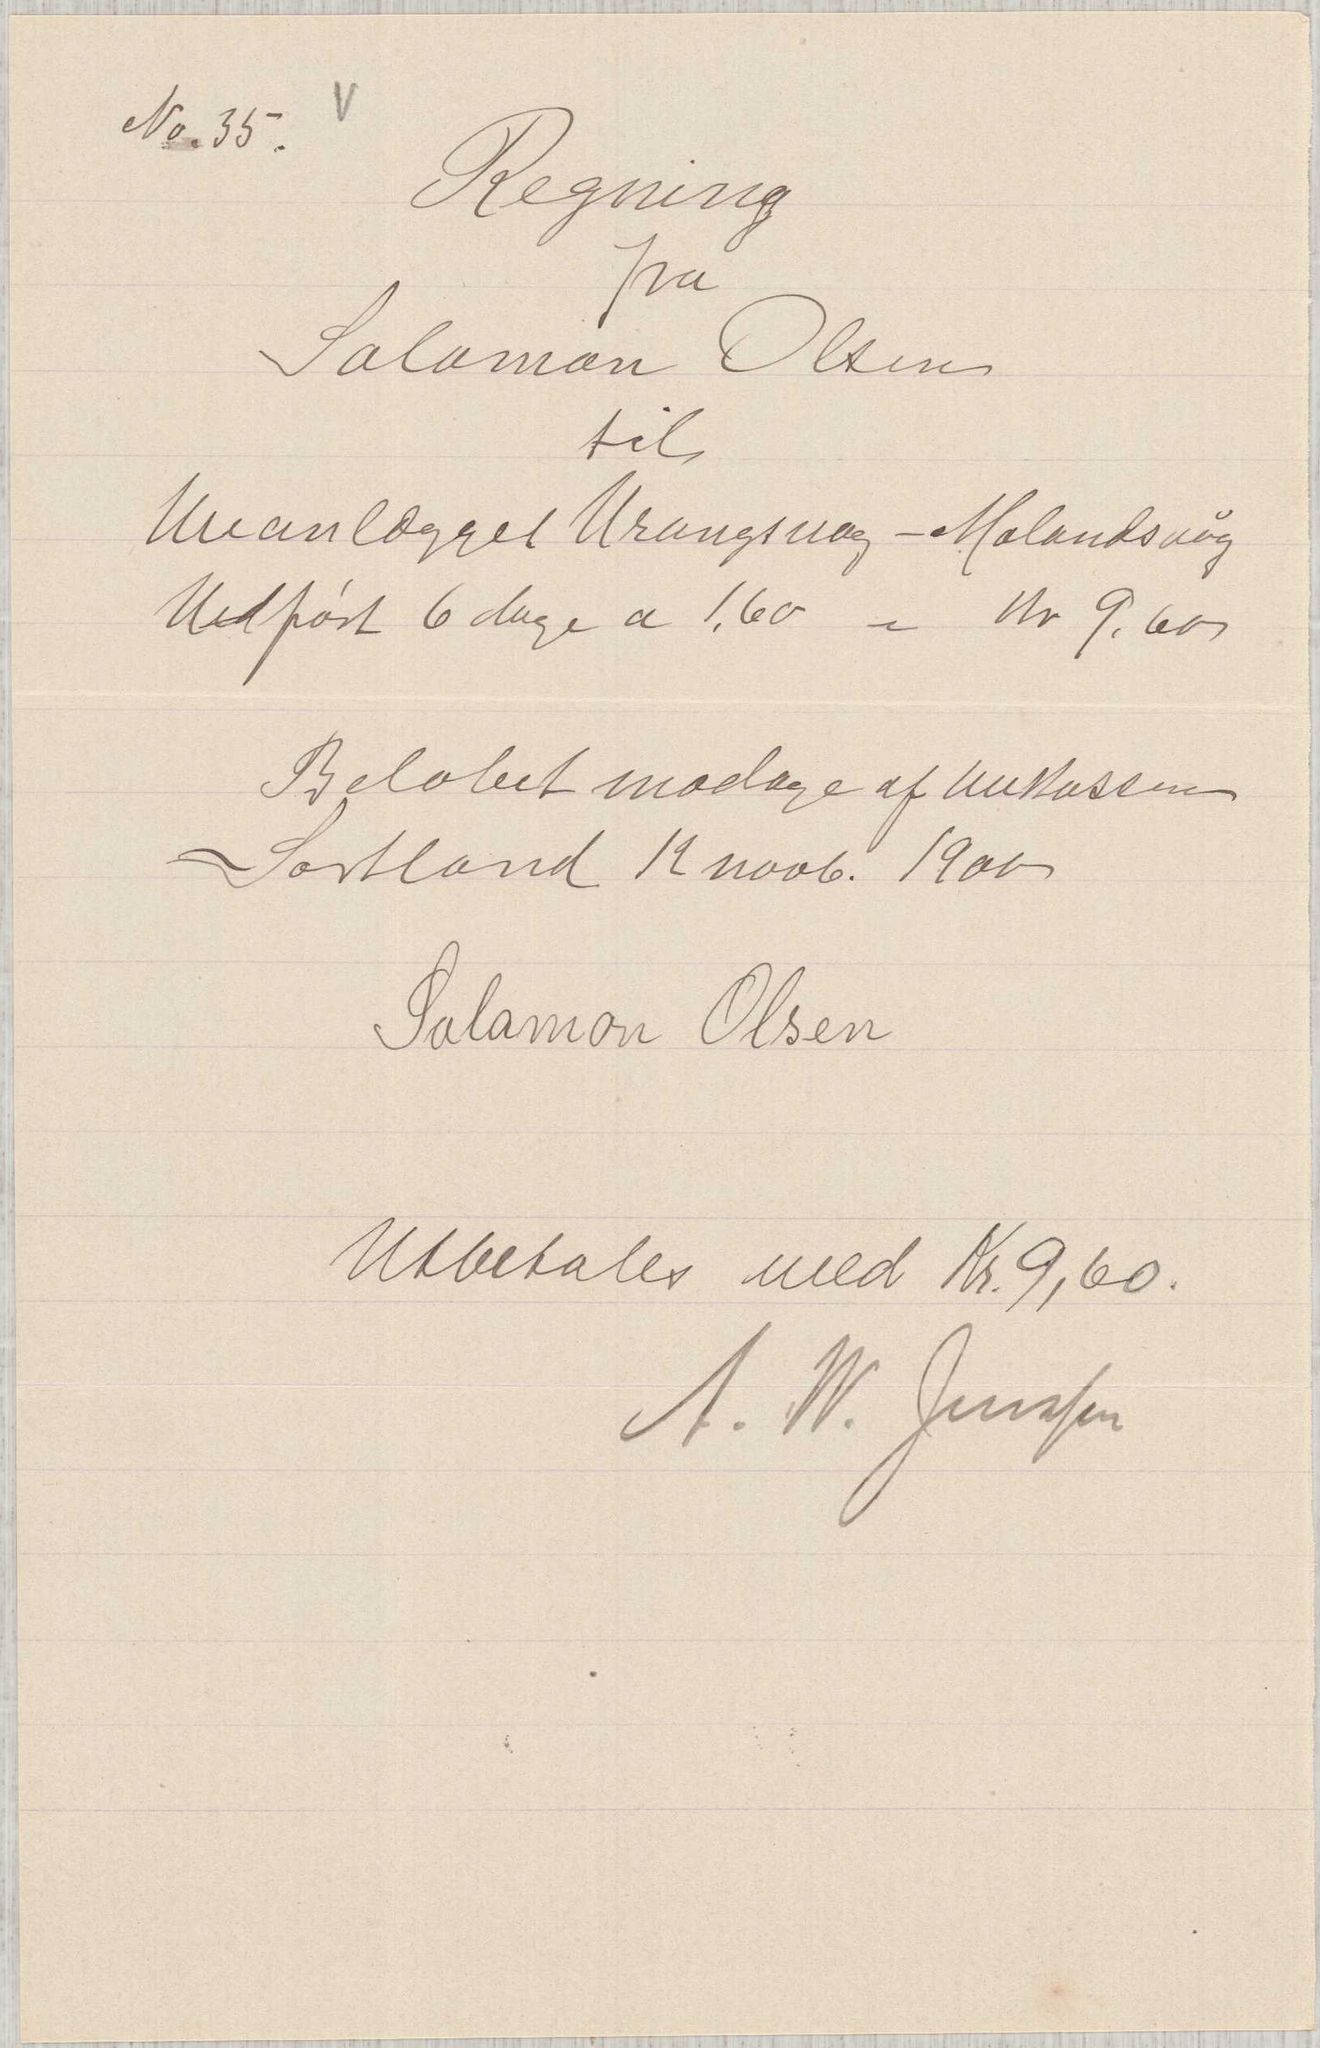 No. 35. V
Regning
fra
Salamon Olsen
til
Veanlægget Vrangsvag - Malandsvåg
Udført 6 dage a 1,60 = Kr 9.60
Beløbet modage af Vekassen
Sortland 12 novb. 1900
Salamon Olsen
Utbetales med Kr. 9,60.
A. W. Jenssen